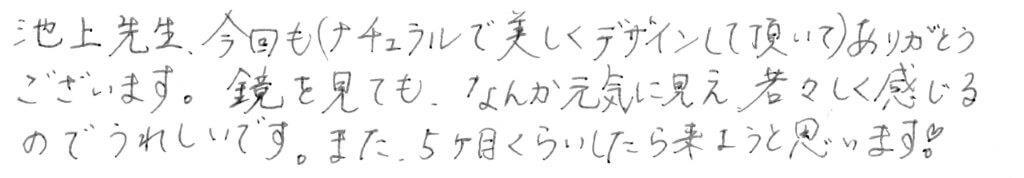 池上先生、今回も(ナチュラルで美しくデザインして頂いて)ありがとう
ございます。鏡を見ても、なんか元気に見え、若々しく感じる
のでうれしいです。また、5ヶ月くらいしたら来ようと思います♡